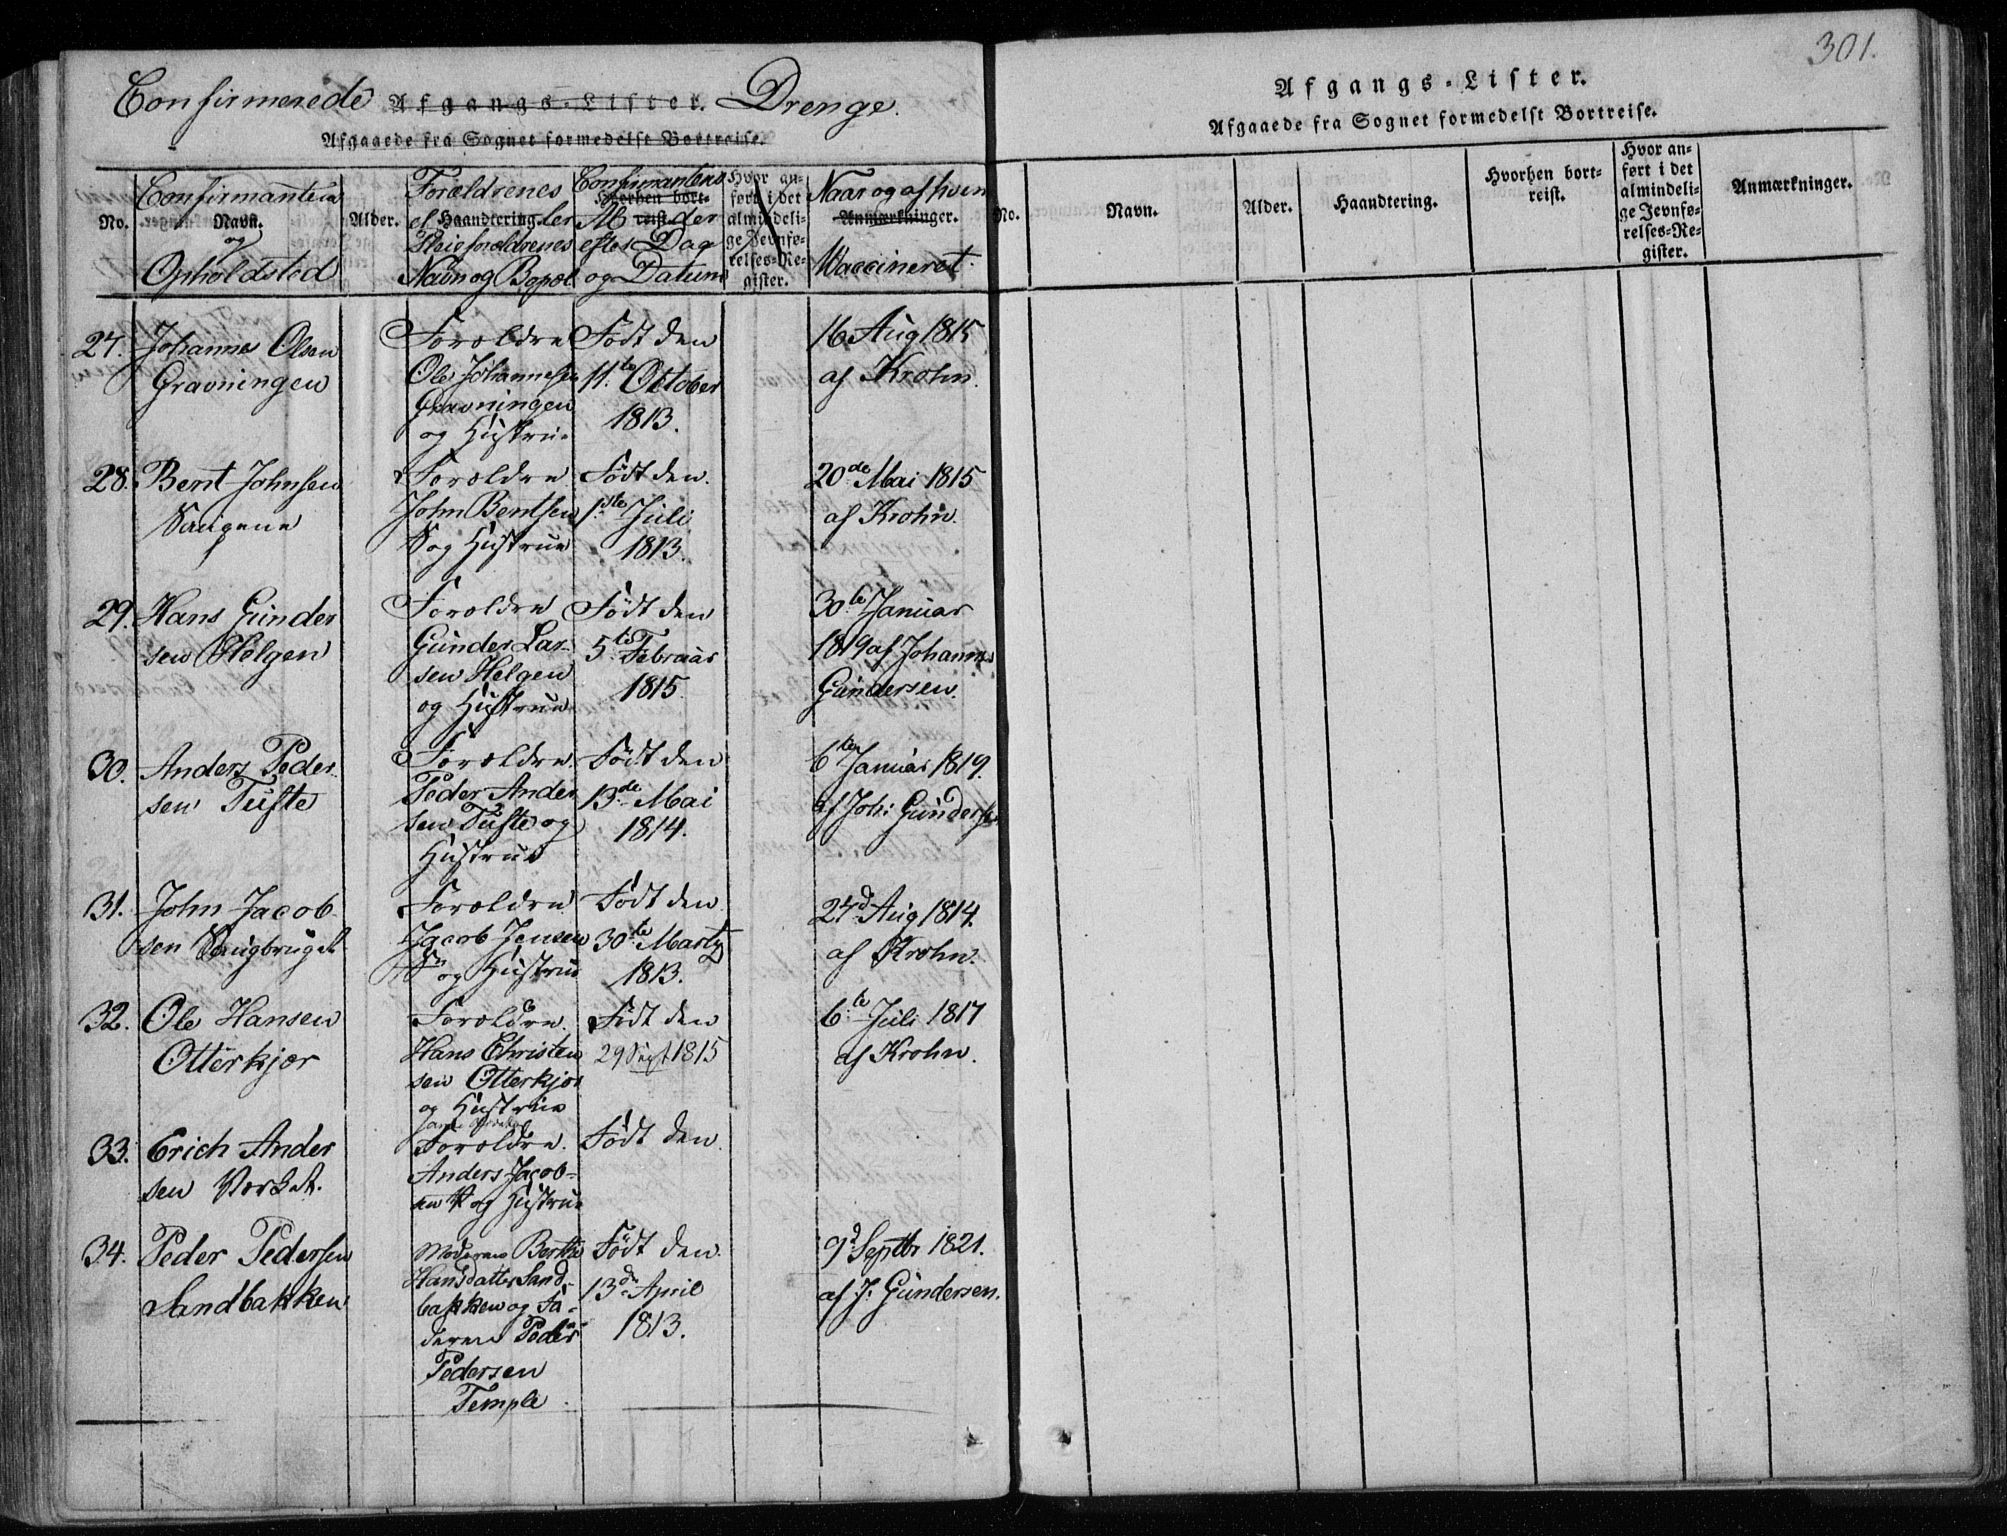 Confirmerede Afgangs-Lister. Drenge.
Afgaaede fra Sognet formedelst Bortreise.
No.
Confirmantens
Navn.
og
Opholdsted
Alder.
Forældrenes
el Haandtering. ler
Navn og Bopæl
Confirmantens
Hvorhen bort-
reist.
efter Dag
og Datum
Hvor an-
ført i det
almindeli-
ge Jevnfø-
relses-Re-
gister.
Naar og af hvem
Anmærkninger.
Vaccineret
27. Johannes Olsen
Gravningen
Foroldre
Ole Johannesen
Gravningen
og Hustrue
Født den
11te October
1813.
16 Aug 1815
af Krohn.
28. Bent Johnsen
Saugene
Foroldre
John Bentsen
S og Hustrue
Født den
1ste Juli
1813.
20de Mai 1815
af Krohn.
29. Hans Gunder
sen Helgen
Foroldre
Gunder Lar-
sen Helgen
og Hustrue
Født den
5te Februar
1815.
30te Januar
1819 af Johannes
Gundersen.
30. Anders Peder
sen Tufte
Foroldre
Peder Ander
sen Tufte og
Hustrue
Født den
13de Mai
1814.
6te Januar 1819.
af Joh: Gundersen
31. John Jacob
sen Saugbruget
Foroldre
Jacob Jensen
S og Hustrue
Født den
30te Marty
1813.
27d Aug 1814.
af Krohn.
32. Ole Hansen
Otterkjær
Foroldre
Hans Christen
sen Otterkjær
og Hustrue
Født den
29 Sept 1815
6te Juli 1817
af Krohn.
33. Erich Ander
sen Værket.
Foroldre.
Anders Jacob-
sen V og Hustrue
Født den
34. Peder Pedersen
Sandbakken
Moderen Berthe
Hansdatter Sand-
bakken og Fa-
deren Peder
Pedersen
Temple.
Født den
13de April
1813.
9d Septbr 1821.
af J. Gundersen.
301.
Afgangs-Lister.
Afgaaede fra Sognet formedelst Bortreise.
No.
Navn.
Alder.
Haandtering.
Hvorhen bort-
reist.
Hvor an-
ført i det
almindeli-
ge Jevnfø-
relses-Re-
gister.
Anmærkninger.